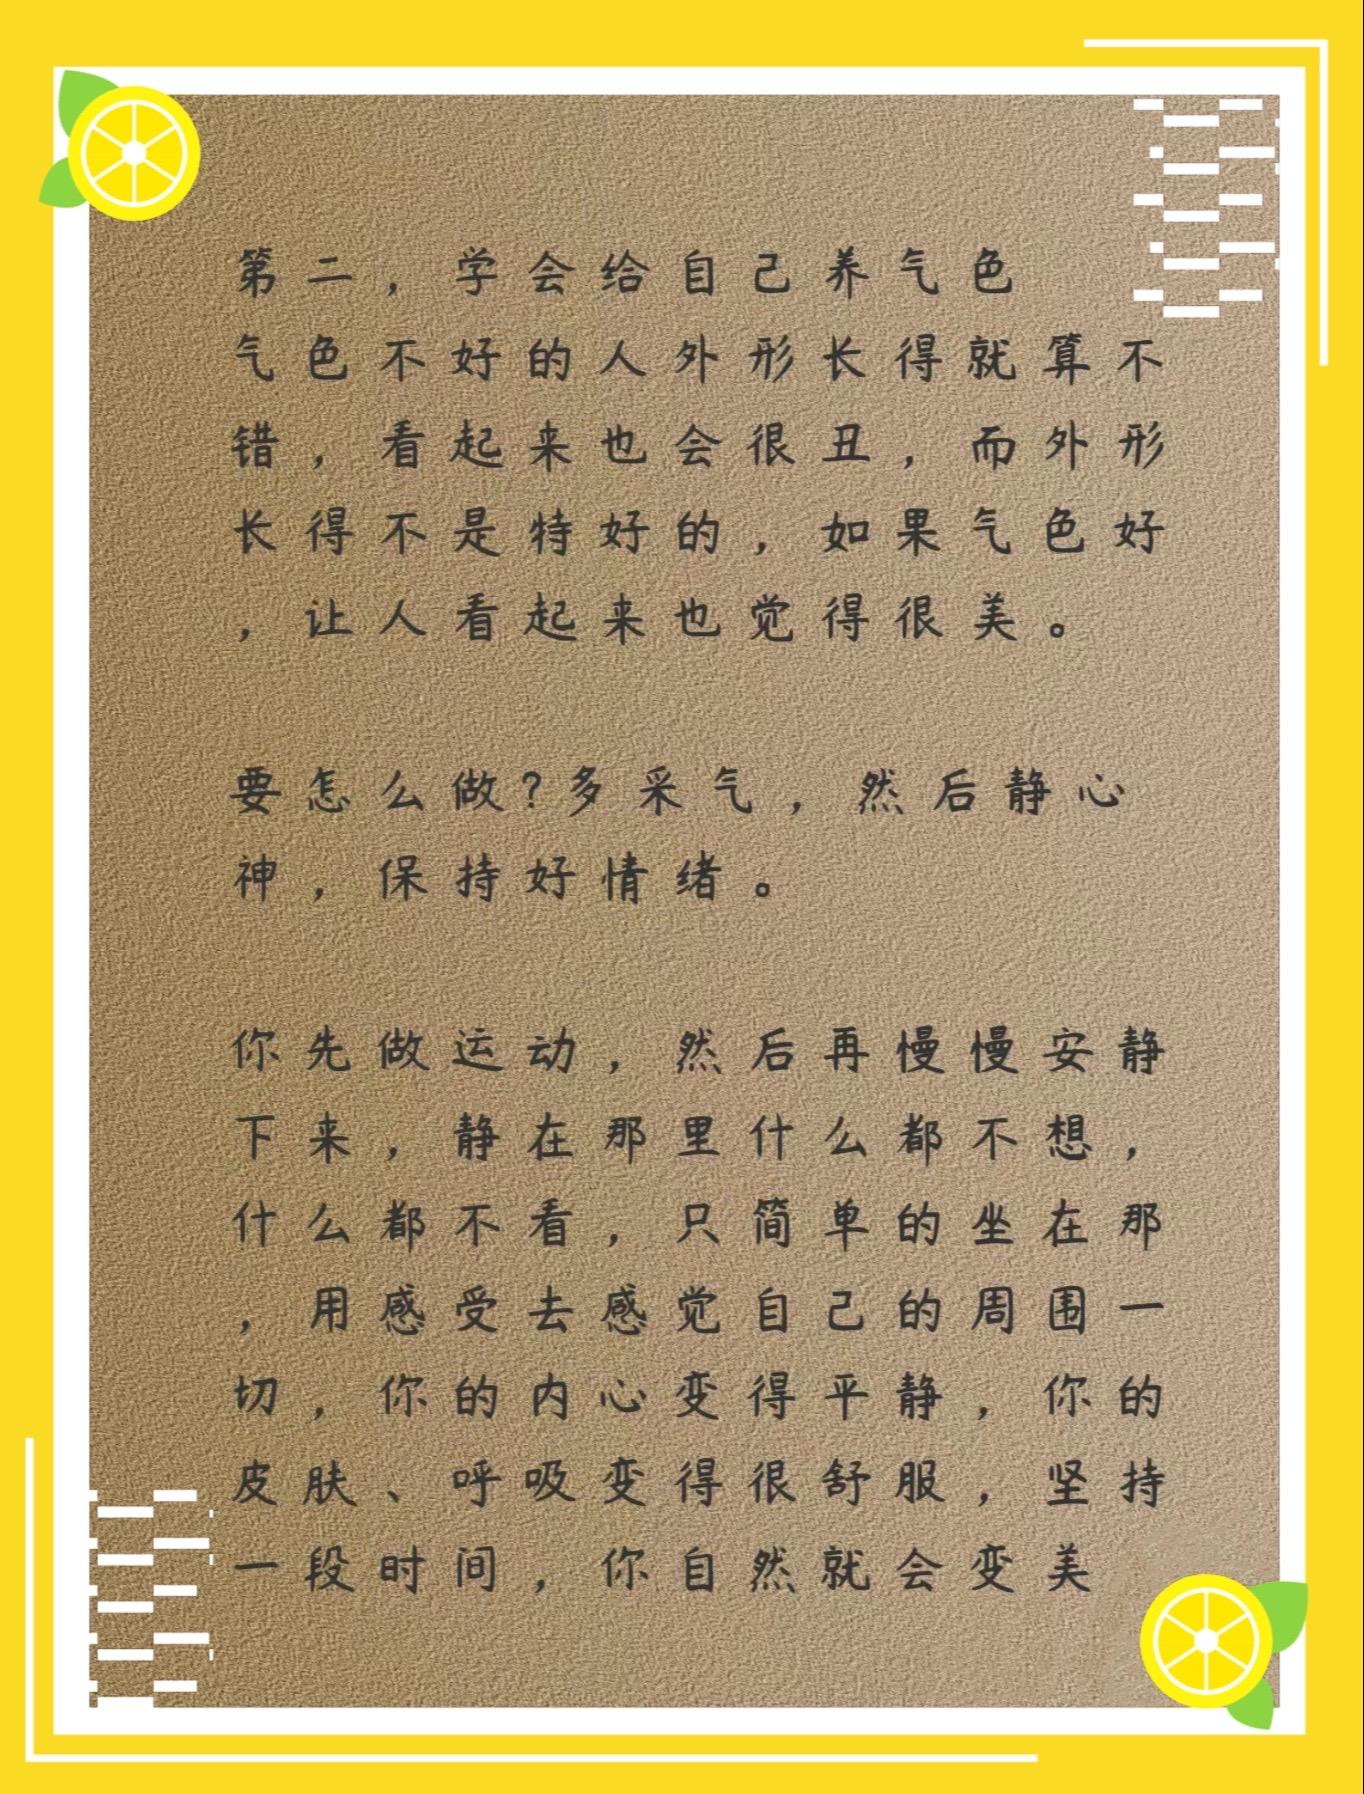 第二，学会给自己养气色
气色不好的人外形长得就算不
错，看起来也会很丑，而外形
长得不是特好的，如果气色好
，让人看起来也觉得很美。
要怎么做?多采气，然后静心
神，保持好情绪。
你先做运动，然后再慢慢安静
下来，静在那里什么都不想，
什么都不看，只简单的坐在那
，用感受去感觉自己的周围一
切，你的内心变得平静，你的
皮肤、呼吸变得很舒服，坚持
一段时间，你自然就会变美